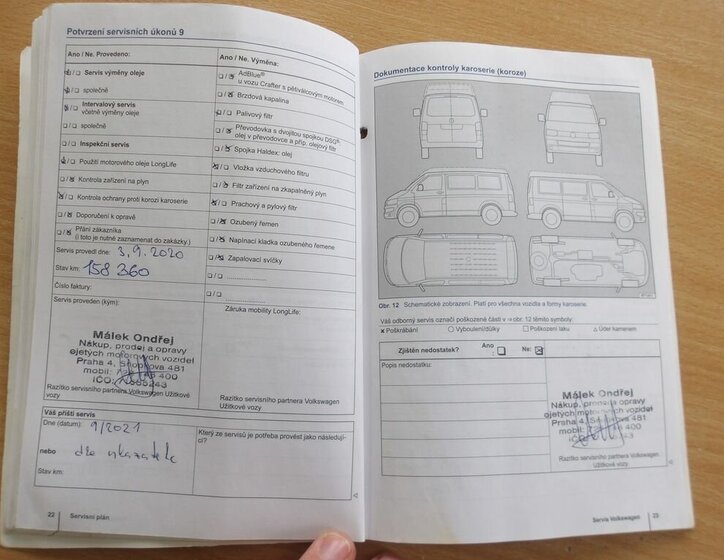 Potvrzení servisních úkonů 9
Ano / Ne. Provedeno:
Servis výměny oleje
společně
Intervalový servis
včetně výměny oleje
společně
Inspekční servis
Použití motorového oleje LongLife
Kontrola zařízení na plyn
Kontrola ochrany proti korozi karoserie
Doporučení k opravě
Přání zákazníka
(i toto je nutné zaznamenat do zakázky.)
Servis provedl dne: 3.9.2020
Stav km: 158 360
Číslo faktury:
Servis proveden (kým):
Málek Ondřej
Nákup, prodej a opravy
ojetých motorových vozidel
Praha 4, 481
mobil: 400
IČO:
Razítko servisního partnera Volkswagen Užitkové
vozy
Ano / Ne. Výměna:
AdBlue®
u vozu Crafter s pětiválcovým motorem
Brzdová kapalina
Palivový filtr
Převodovka s dvojitou spojkou DSG®
olej v převodovce a příp. olejový filtr
Spojka Haldex: olej
Vložka vzduchového filtru
Filtr zařízení na zkapalněný plyn
Prachový a pylový filtr
Ozubený řemen
Napínací kladka ozubeného řemene
Zapalovací svíčky
Záruka mobility LongLife:
Razítko servisního partnera Volkswagen
Užitkové vozy
Váš příští servis
Dne (datum): 9/2021
nebo dle ukazatele
Stav km:
Který ze servisů je potřeba provést jako následují-
cí?
22 Servisní plán
Dokumentace kontroly karoserie (koroze)
Obr. 12 Schematické zobrazení. Platí pro všechna vozidla a formy karoserie.
Váš odborný servis označí poškozené části v ⇒ obr. 12 těmito symboly:
x Poškrábání ○ Vyboulení/důlky □ Poškození laku △ Úder kamenem
Zjištěn nedostatek? Ano : Ne:
Popis nedostatku:
Málek Ondřej
Nákup, prodej a opravy
ojetých motorových vozidel
Praha 4, 481
mobil:
Razítko servisního partnera Volkswagen
Užitkové vozy
Servis Volkswagen 23